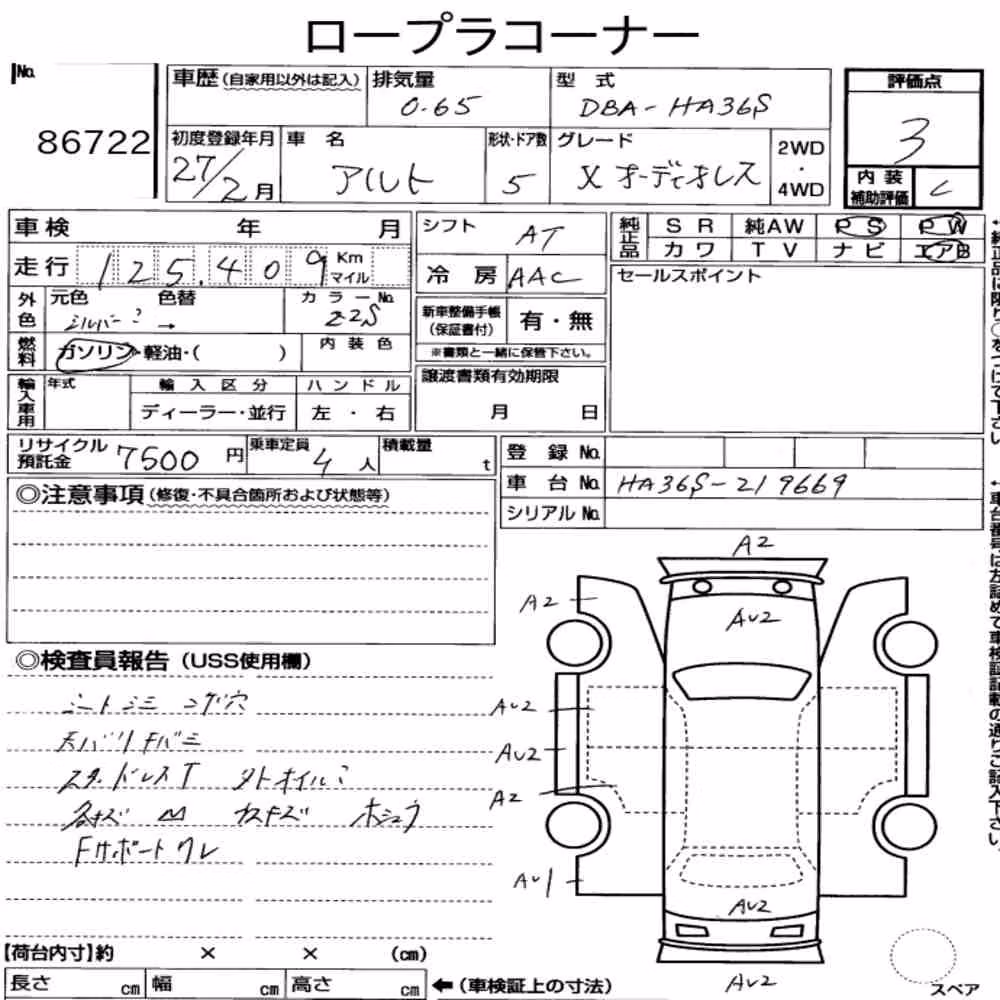 ロープラコーナー
No.
86722
車歴(自家用以外は記入)
排気量
0.65
型 式
DBA-HA36S
評価点
3
初度登録年月
27/2月
車 名
アルト
形状・ドア数
5
グレード
X オーディオレス
2WD
・
4WD
内 装
補助評価
C
車検 年 月
シフト
AT
純正品
S R 純AW P S P W
カ ワ T V ナ ビ エアB
走行 125,409 Km
マイル
冷 房 AAC
セールスポイント
外色
元色 色替
シルバー →
カ ラ ー No.
Z2S
新車整備手帳
(保証書付)
有・無
※書類と一緒に保管下さい。
燃料
ガソリン・軽油・( )
内 装 色
譲渡書類有効期限
月 日
輸入車用
年式
輸 入 区 分
ディーラー・並行
ハ ン ド ル
左 ・ 右
リサイクル
預託金
7500 円
乗車定員
4 人
積載量
t
登 録 No.
車 台 No. HA36S-219669
シリアル No.
◎注意事項(修復・不具合箇所および状態等)
←純正品に限り○をつけて下さい
←車台番号は左詰めで車検証記載の通りご記入下さい。
◎検査員報告(USS使用欄)
シートシミ コゲ穴
天バリ
スタッドレスT
各キズ
ホシュウ
Fサポートワレ
A2
A2
AU2
AU2
AU2
A2
AU1
AU2
AU2
【荷台内寸】約 × × (cm)
長さ cm 幅 cm 高さ cm ←(車検証上の寸法)
スペア